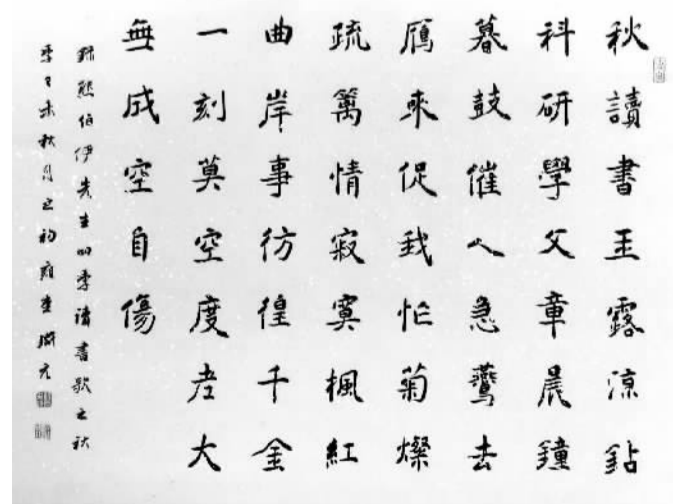 秋讀書玉露涼鉆
科研學文章晨鐘
暮鼓催人急鷰去
鴈來促我忙菊燦
疏籬情寂寞楓紅
曲岸事彷徨千金
一刻莫空度老大
無成空自傷
錄熊伯伊先生四季讀書歌之秋
季乙未秋月之初